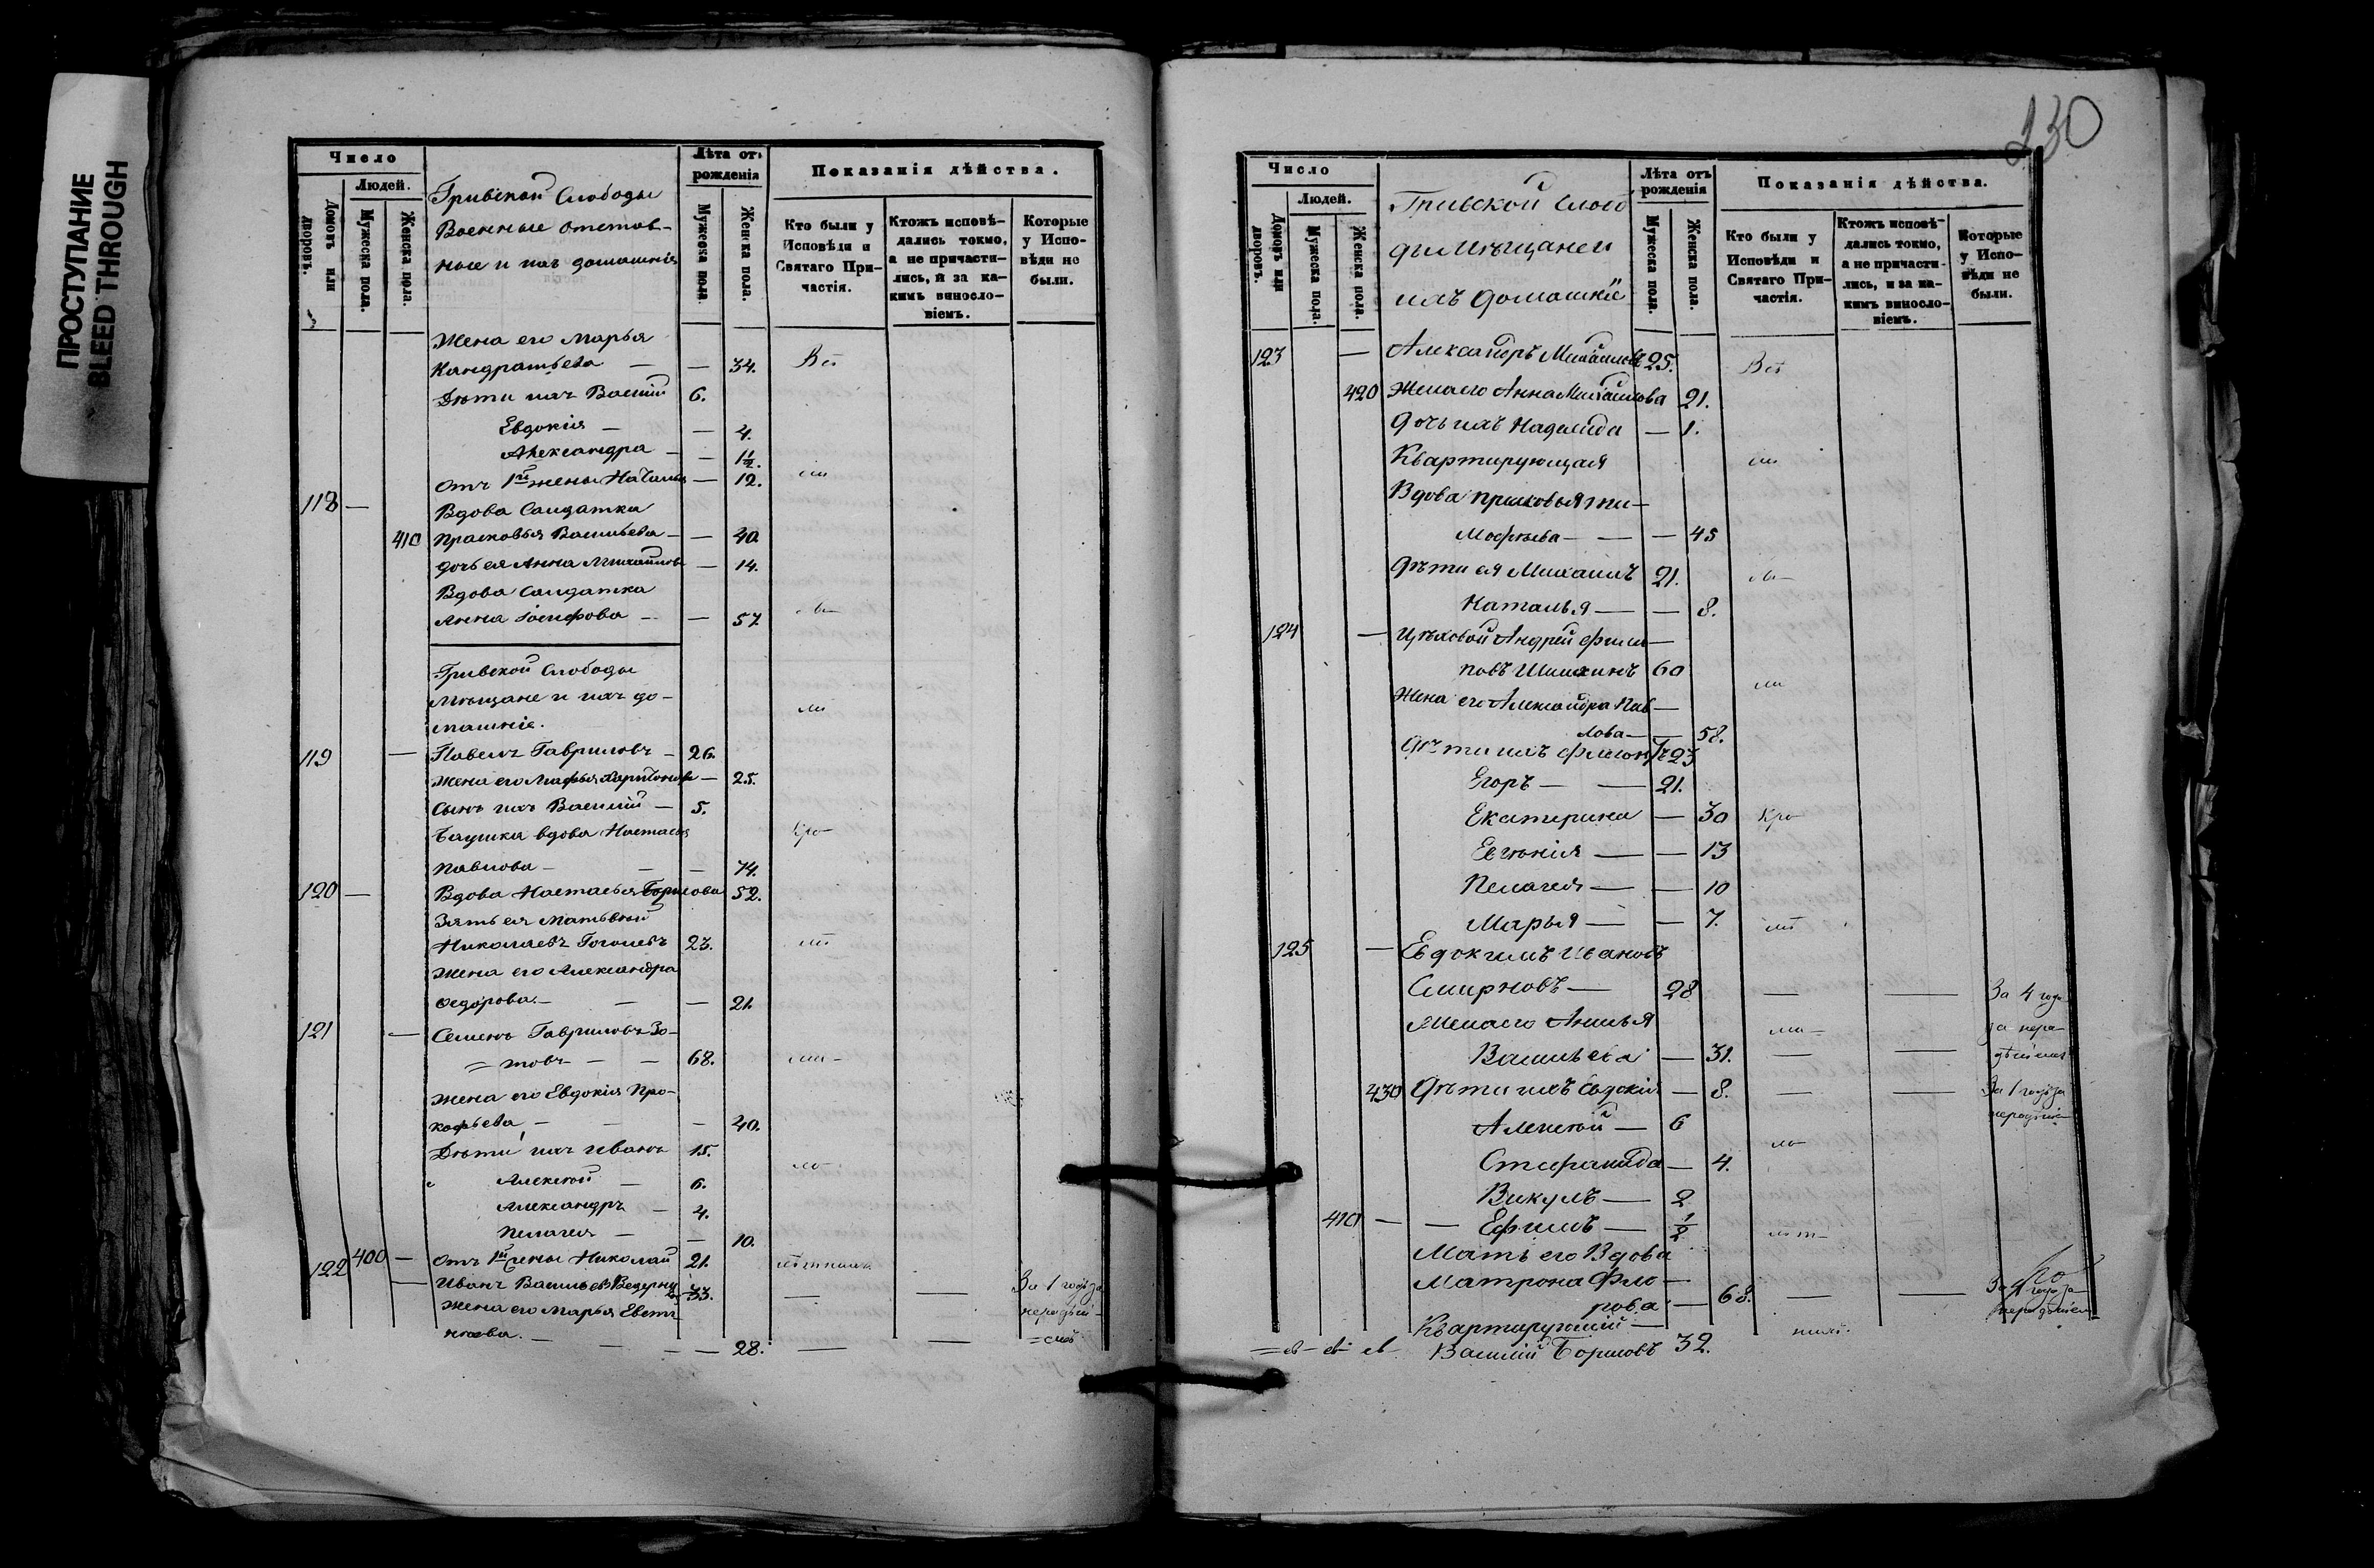 ПРОСТУПАНИЕ
BLEED THROUGH
Число
Людей.
Домовъ или дворовъ.
Мужеска пола.
Женска пола.
Гривской Слободы
Военные отстав-
ные и ихъ домашнія
Лѣта отъ рожденія
Мужеска пола.
Женска пола.
Показанія дѣйства.
Кто были у Исповѣди и Святаго При-частія.
Ктожъ исповѣ-дались токмо, а не причасти-лись, и за ка-кимъ винсло-віемъ.
Которые у Испо-вѣди не были.
Жена его Марья
Кандратьева — — 34. Вѣ
Дѣти ихъ Василій 6.
Евдокія — — 4.
Александра — — 1 1/2.
отъ 1й жены Наталья — 12.
118 — Вдова Салдатка
410 Прасковья Васильева — — 40
дочь ея Анна Михайлова — 14.
Вдова Салдатка
Анна Іосифова — — 57
Гривской Слободы
Мѣщане и ихъ до-
машніе.
119 — Павелъ Гавриловъ — 26.
Жена его Марья Харитонова — 25.
Сынъ ихъ Василій — 5.
Бабушка вдова Настасья
Павлова — — — 74.
120 — Вдова Настасья Борисова 52.
Зять ея Матьвѣй
Николаевъ 23.
Жена его Александра
Ѳедорова. — — — 21.
121 — Семенъ Гавриловъ Зо-
= товъ — — 68.
Жена его Евдокія Про-
кофьева — — — 40.
Дѣти ихъ Иванъ 15.
Алексѣй — 6.
Александръ — 4.
Пелагея — — 10.
122 400 — отъ 1й жены Николай 21.
— Иванъ Васильевъ 33. — — За 1 годъ за
Жена его Марья Евста нерадѣні-
— — — 28. — — = емъ
230
Число
Людей.
Домовъ или дворовъ.
Мужеска пола.
Женска пола.
Гривской Слобо
ды Мѣщане и
ихъ домашніе
Лѣта отъ рожденія
Мужеска пола.
Женска пола.
Показанія дѣйства.
Кто были у Исповѣди и Святаго При-частія.
Ктожъ исповѣ-дались токмо, а не причасти-лись, и за ка-кимъ винсло-віемъ.
Которые у Испо-вѣди не были.
123 — Александръ Михайловъ 25. Вѣ
420 Жена его Анна Михайлова 21.
Дочь ихъ Надежда — 1.
Квартирующая
Вдова Прасковья Ти-
мофѣева — — — 45
Дѣти ея Михаилъ 21.
Наталья — — 8.
124 — Цѣховой Андрей Фили-
повъ Шишкинъ 60
Жена его Александра Пав-
лова — — 58.
Дѣти ихъ 23
Егоръ — — 21.
Екатерина — 30
Евгенія — — 13
Пелагея — — 10
Марья — — 7.
125 — Евдокимъ Ивановъ
Смирновъ — 28 — — За 4 года
Жена его Анисья за нера-
Васильева — 31. — — дѣніемъ
430 Дѣти ихъ Евдокія — 8. — — За 1 годъ за
Алексѣй — 6 нерадѣніе
Степанида — 4.
Викулъ — 2
410 — — Ефимъ — 1/2
Мать его Вдова
Матрона Фло-
рова — 68. — — За года
Квартирующій — нерадѣніем
Василій Борисовъ 32.